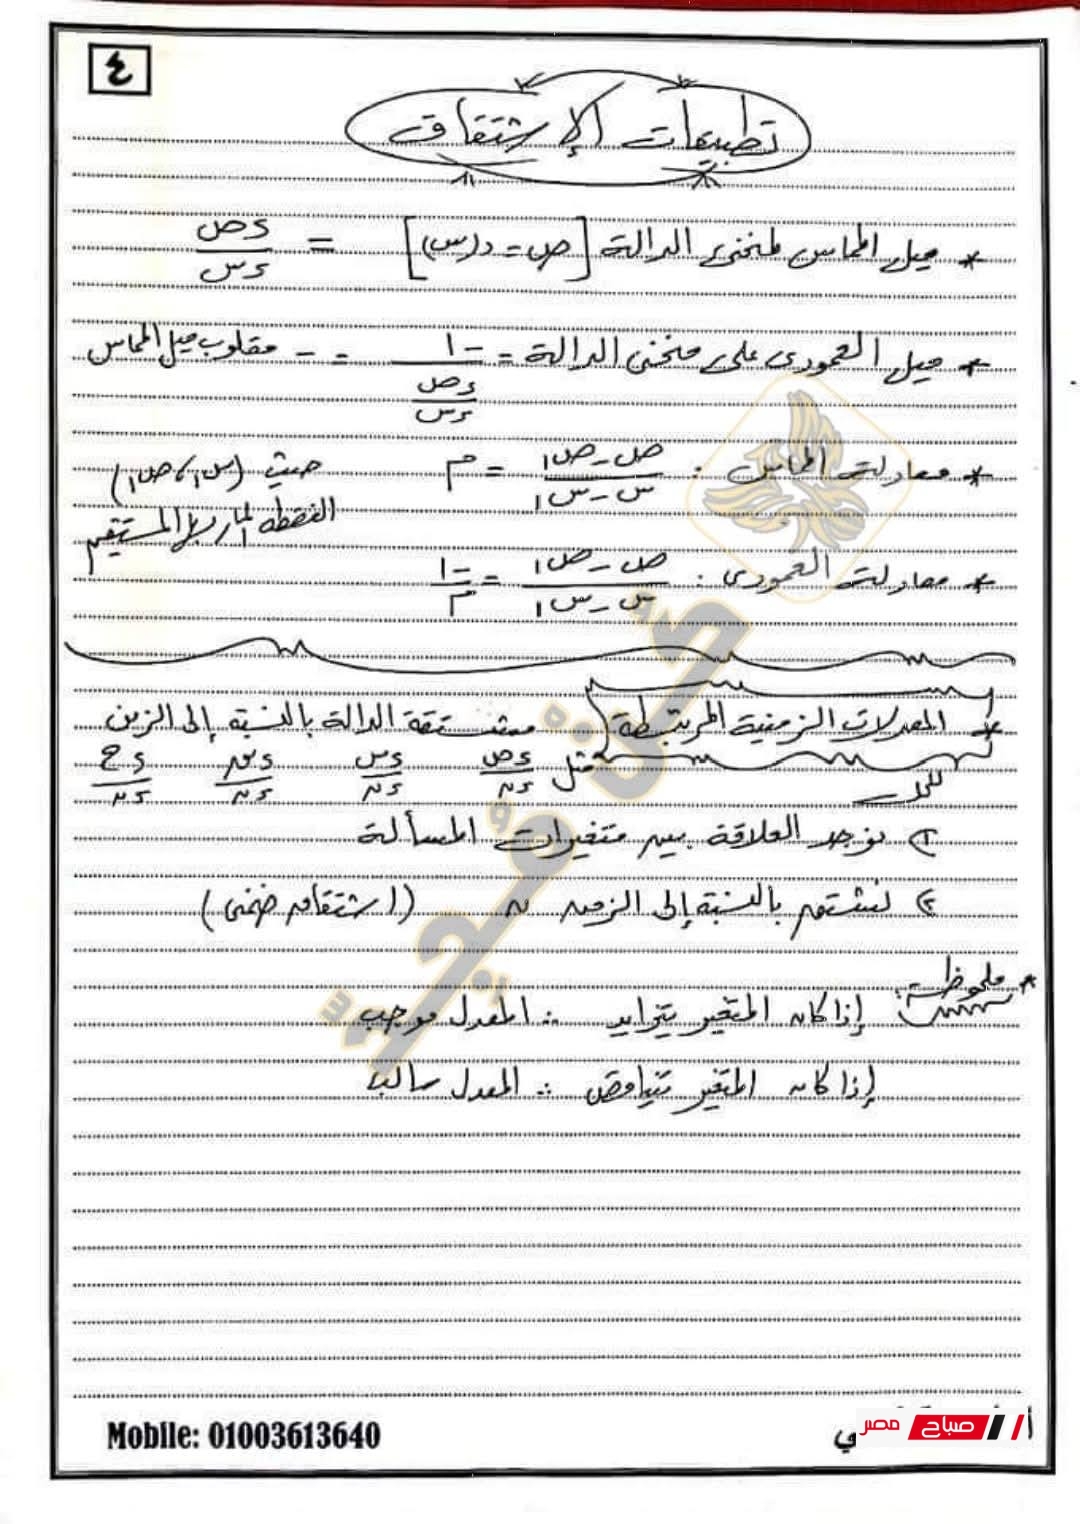 ٤
تطبيقات الإشتقاق
* ميل المماس لمنحنى الدالة [ص = د(س)] = ءص/ءس
* ميل العمودى على منحنى الدالة = -١/(ءص/ءس) = - مقلوب ميل المماس
* معادلة المماس : (ص - ص١)/(س - س١) = م حيث (س١، ص١)
النقطه المار بها المستقيم
* معادلة العمودى : (ص - ص١)/(س - س١) = -١/م
* المعدلات الزمنية المرتبطة مشتقة الدالة بالنسبة إلى الزمن
مثل ءص/ءن ءس/ءن ءم/ءن ءح/ءن
للحل
١) نوجد العلاقة بين متغيرات المسألة
٢) نشتق بالنسبة إلى الزمن ن (اشتقاق ضمنى)
* ملحوظة:
إذا كان المتغير يتزايد ∴ المعدل موجب
إذا كان المتغير يتناقص ∴ المعدل سالب
Mobile: 01003613640
صباح مصر